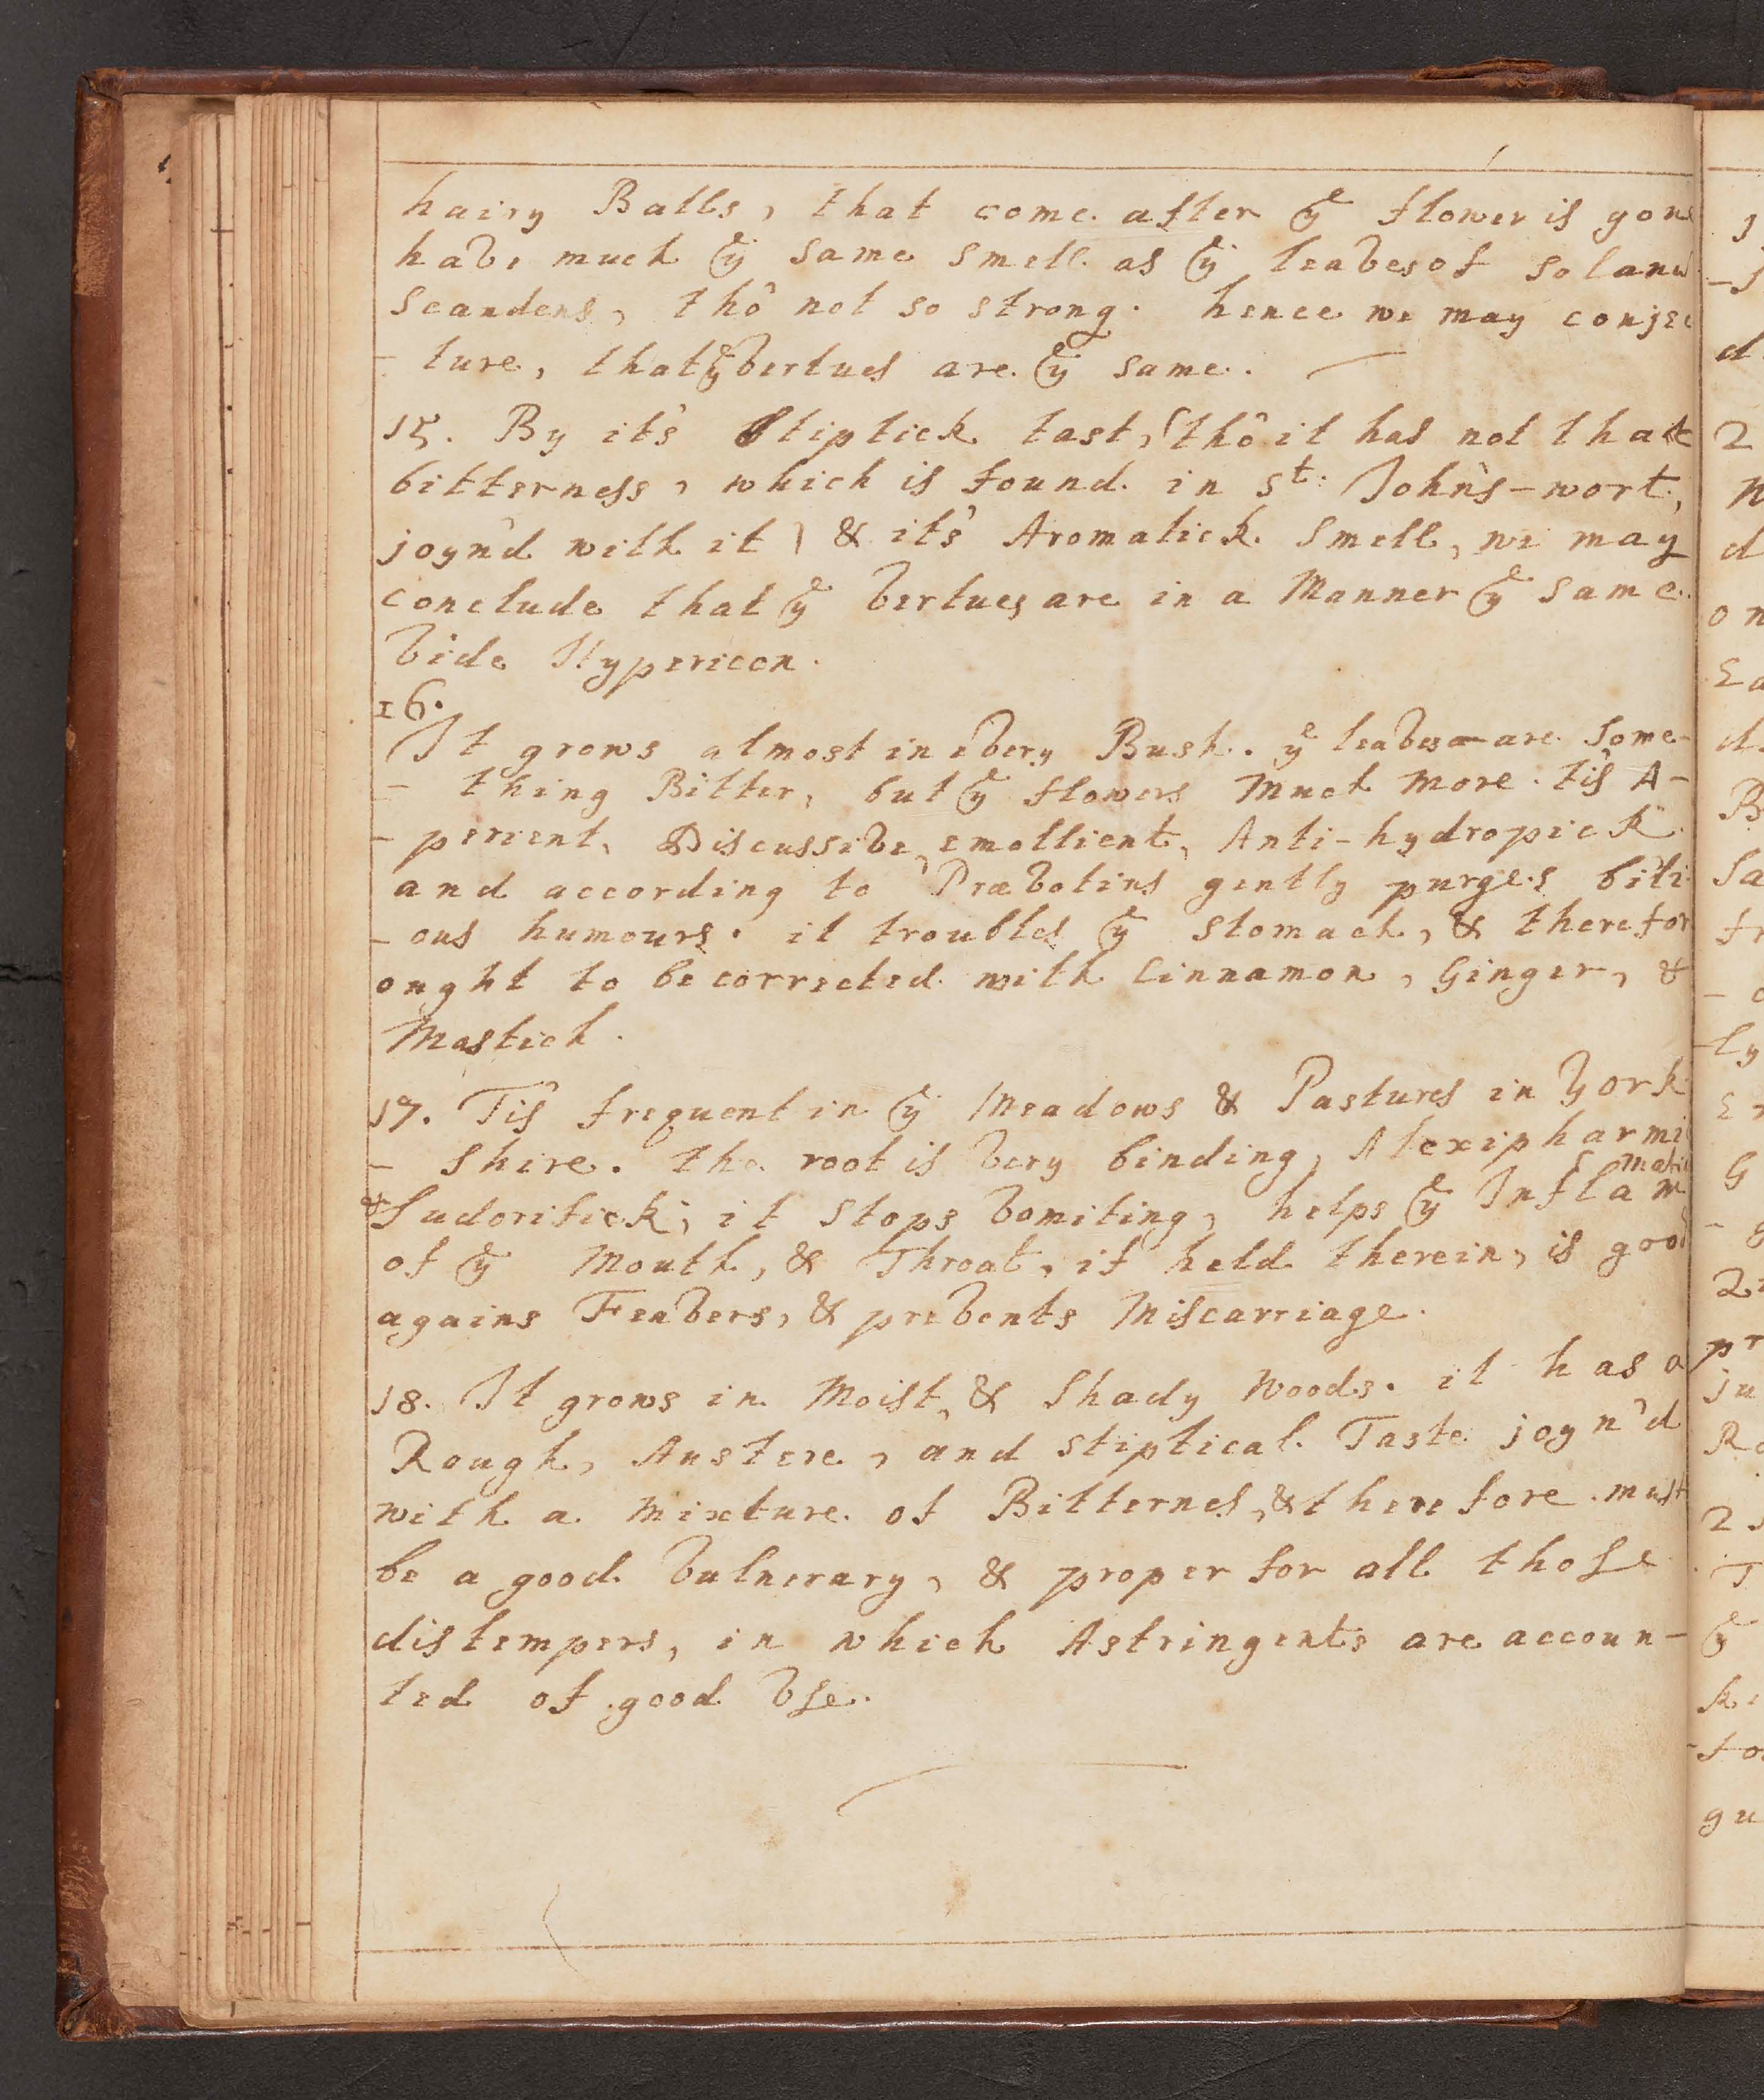 hairy Balls, that come after yͤ flower is gone
have much yͤ same smell as yͤ leaves of Solanu
scandens, thô not so strong. hence we may conjec
- ture, that yͤ vertues are yͤ same.
15. By it's Stiptick tast, (thô it has not that
bitterness, which is found in Sᵗ: John's-wort,
joyn'd with it) & it's Aromatick Smell, we may
conclude that yͤ vertues are in a Manner yͤ same.
vide Hypericon.
16.
It grows almost in every Bush. yͤ leaves are Some-
- thing Bitter, but yͤ flowers Much More. tis A-
- perient, Discussive, emollient, Anti-hydropick
and according to Prævotius gently purges bili
- ous humours. it troubles yͤ stomach, & therefor
ought to be corrected with Cinnamon, Ginger, &
Mastich.
17. Tis frequent in yͤ Meadows & Pastures in York
- Shire. the root is very binding, Alexipharmi
& Sudorifick; it stops vomiting, helps yͤ Inflammati
of yͤ Mouth, & Throat, if held therein, is good
agains Feavers, & prevents Miscarriage.
18. It grows in Moist, & Shady Woods. it has a
Rough, Austere, and stiptical Taste joyn'd
with a mixture of Bitternes, & therefore must
be a good vulnerary, & proper for all those
distempers, in which Astringents are accoun-
ted of good vse.